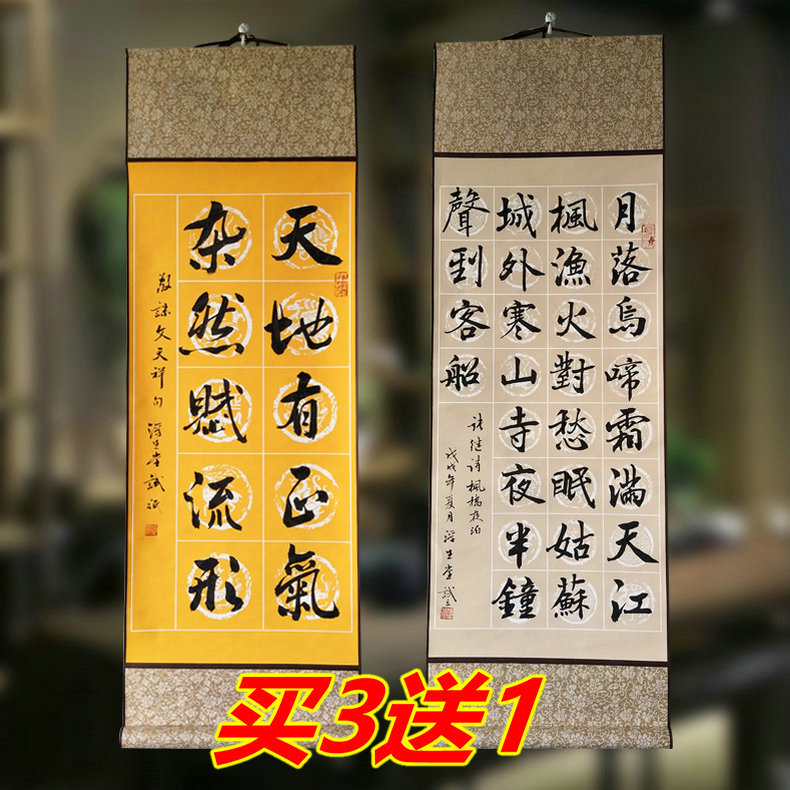 天地有正氣
杂然賦流形
敬录文天祥句
月落烏啼霜滿天江
楓漁火對愁眠姑蘇
城外寒山寺夜半鐘
聲到客船
张继诗楓橋夜泊
戊戌年夏月
买3送1